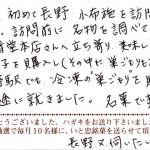 初めて長野 小布施を訪問
訪問前に 名物を調べて
堂本店さんへ立ち寄り 美味し
子を購入し(その中に 栗
駅でも、冷凍の栗
途に就きました。名菓で
とうございました。ハガキをお送り下さいました
抽選で毎月10名様に、いと忠銘菓を送らせて頂
長野又伺いたい